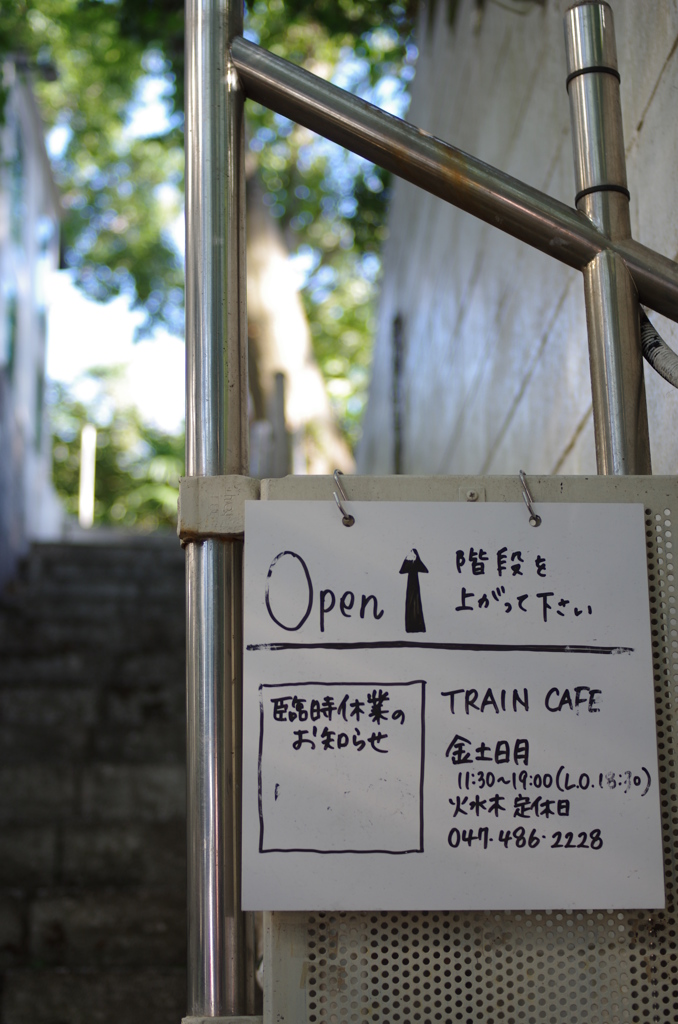 Open
階段を
上がって下さい
臨時休業の
お知らせ
TRAIN CAFE
金土日月
11:30〜19:00(L.O.18:30)
火水木定休日
047・486・2228